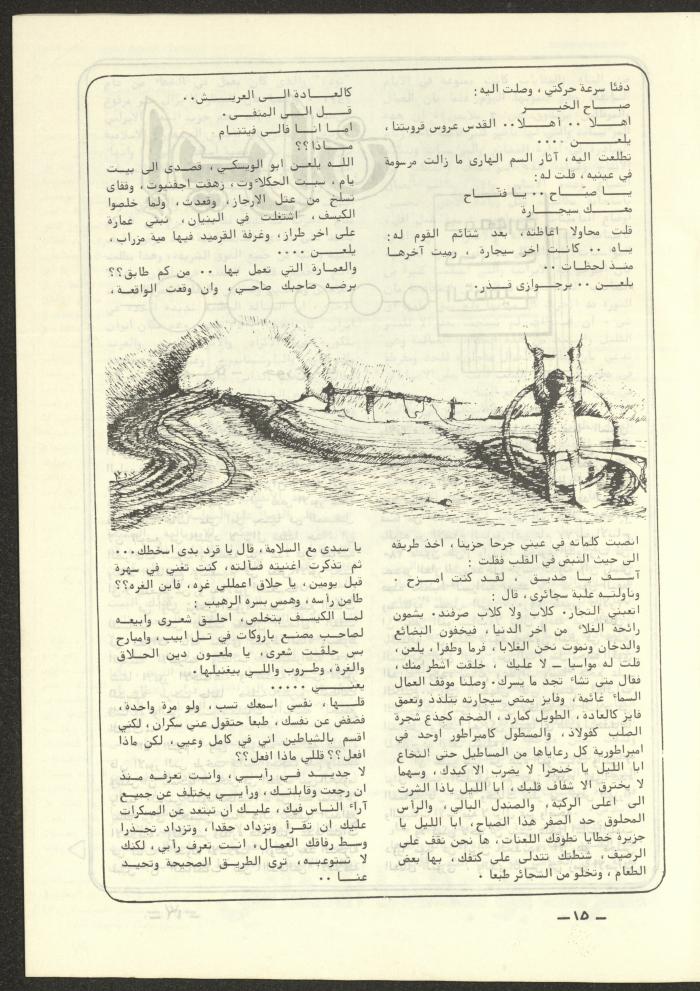 دفئا سرعة حركتي، وصلت اليه:
صباح الخير
اهلا .. أهلا .. القدس عروس قروبتنا،
يلعن ....
تطلعت اليه، آثار السم الهارى ما زالت مرسومة
في عينيه، قلت له:
يا صباح .. يا فتاح
معك سيجارة
قلت محاولا اغاظته، بعد شتائم القوم له:
ياه .. كانت اخر سيجارة، رميت آخرها
منذ لحظات ..
يلعن .. برجوازى قذر.
انصبت كلماته في عيني جرحا حزينا، اخذ طريقه
الى حيث النبض في القلب فقلت:
آسف يا صديق، لقد كنت امزح.
وناولته علبة سجائرى، قال:
اتعبني التجار. كلاب ولا كلاب صرفند. يشمون
رائحة الغلاء من اخر الدنيا، فيخفون البضائع
والدخان ونموت نحن الغلابا، قرما وطفرا، يلعن،
قلت له مواسيا ــ لا عليك، خلقت اشطر منك،
فقال متى تشاء تجد ما يسرك. وصلنا موقف العمال
السماء غائمة، وفايز يمتص سيجارته بتلذذ وتعمق
فايز كالعادة، الطويل كمارد، الضخم كجذع شجرة
الصلب كفولاذ، والمسطول كامبراطور اوحد في
امبراطورية كل رعاياها من المساطيل حتى النخاع
ابا الليل يا خنجرا لا يضرب الا كبدك، وسهما
لا يخترق الا شغاف قلبك، ابا الليل ياذا الشرت
الى اعلى الركبة، والصندل البالي، والرأس
المحلوق حد الصفر هذا الصباح، ابا الليل يا
جزيرة خطايا تطوقك اللعنات، ها نحن نقف على
الرصيف، شنطتك تتدلى على كتفك، بها بعض
الطعام، وتخلو من السجائر طبعا.
كالعادة الى العريش ..
قل الى المنفى.
اما انا فالى فيتنام
ماذا؟؟
الله يلعن ابو الويسكي، قصدى الى بيت
يام، سبت الحكلاءوت، زهقت اجفنيوت، وقفاى
تسلخ من عتل الارجاز، وقعدت، ولما خلصوا
الكيسف، اشتغلت في البنيان، نبني عمارة
على اخر طراز، وغرفة القرميد فيها مية مزراب،
يلعن ....
والعمارة التي تعمل بها .. من كم طابق؟؟
برضه صاحبك صاحي، وان وقعت الواقعة،
يا سيدى مع السلامة، قال يا قرد بدى اسخطك...
ثم تذكرت اغنيته فسألته، كنت تغني في سهرة
قبل يومين، يا حلاق اعمللي غره، فاين الغره؟؟
طامن رأسه، وهمس بسره الرهيب:
لما الكيسف بتخلص، احلق شعرى وابيعه
لصاحب مصنع باروكات في تل ابيب، وامبارح
بس حلقت شعرى، يا ملعون دين الحلاق
والغرة، وطروب واللي بيغنيلها.
يعني .....
قلها، نفسي اسمعك تسب، ولو مرة واحدة،
فضفض عن نفسك، طبعا حتقول عني سكران، لكني
اقسم بالشياطين اني في كامل وعيي، لكن ماذا
افعل؟؟ قللي ماذا افعل؟؟
لا جديد في رأيي، وانت تعرفه منذ
ان رجعت وقابلتك، ورأيي يختلف عن جميع
آراء الناس فيك، عليك ان تبتعد عن المسكرات
عليك ان تقرأ وتزداد حقدا، وتزداد تجذرا
وسط رفاقك العمال، انت تعرف رأيي، لكنك
لا تستوعبه، ترى الطريق الصحيحة وتحيد
عنها ..
ــ ١٥ ــ